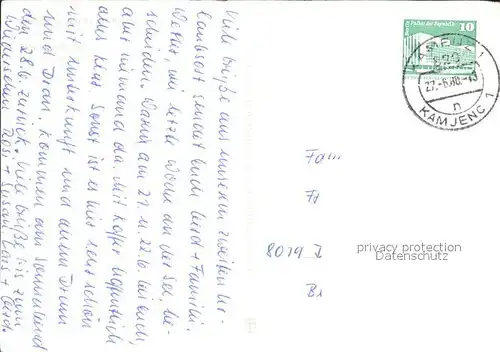 Viele Grüße aus unserem zweiten Ur-
laubsort sendet Euch Gerd + Familie.
Wetter, wie letzte Woche an der See, be-
scheiden. Waren am 21. u. 22.6 bei Euch,
aber niemand da. Mit Koffer hoffentlich
alles klar. Sonst ist es hier recht schön
mit Unterkunft und allem Drum
und Dran. Kommen am Sonnabend
den 28.6. zurück. Viele Grüße bis zum
Wiedersehen Rosi + Susan Lars + Gerd.
Palast der Republik
10
KAMENZ 1
829
27.-6.80.-15
n
KAMJENC 1
Fam
8019
privacy protection
Datenschutz